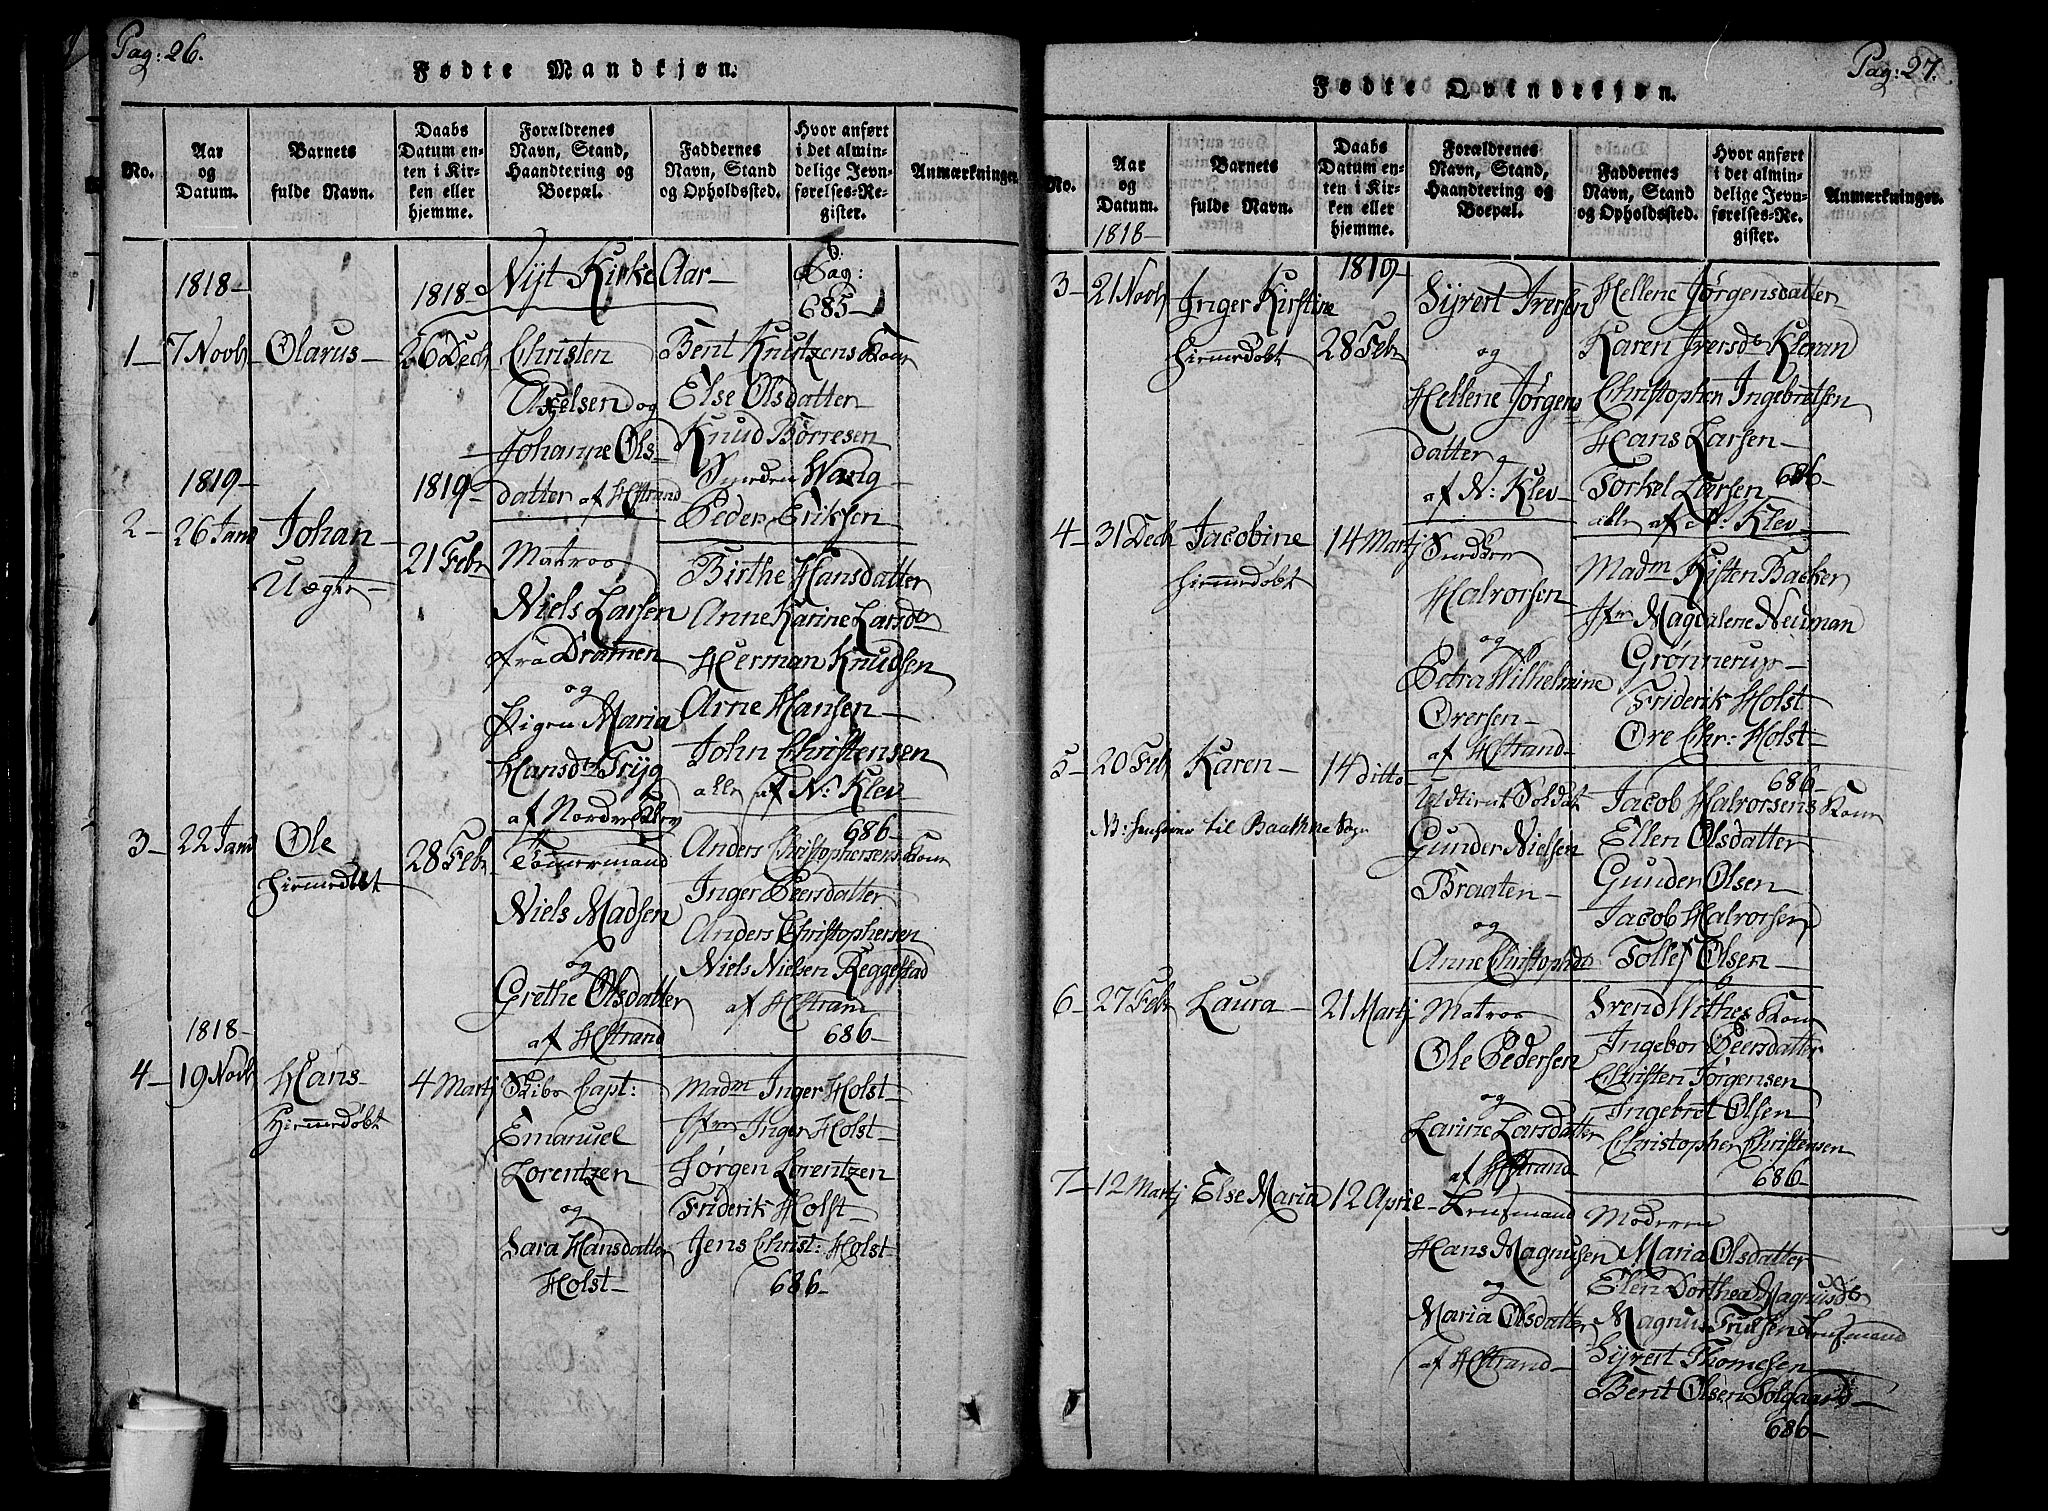 Pag: 26.
Fødte Mandkjøn.
No.
Aar og Datum.
Barnets fulde Navn.
Daabs Datum enten i Kirken eller hjemme.
Forældrenes Navn, Stand, Haandtering og Boepæl.
Faddernes Navn, Stand og Opholdssted.
Hvor anført i det almindelige Jevnførelses-Register.
Anmærkninger.
Nÿt Kirke Aar
Pag: 685
1818
1818
1
7 Novbr
Olarus
26 Decb
Christen
Axelsen og
Johanne Ols-
datter af HStrand
Bent Knutzens Kone
Else Olsdatter
Knud Börresen
Peder Eriksen
1819
1819
2
26 Janr
Johan
Uægte
21 Febr
Matros
Niels Larsen
fra Dramen
og
Pigen Maria
Hansdtr Trÿg
af Nordre Klev
Birthe Hansdatter
Anne Karine Larsdtr
Herman Knudsen
Arne Hansen
John Christensen
alle af N: Klev
686
3
22 Janr
Ole
hiemedøbt
28 Febr
Tömmermand
Niels Madsen
og
Grethe Olsdatter
af HStrand
Anders Christophersens Kone
Inger Peersdatter
Anders Christophersen
Niels Nielsen Reggestad
af HStrand
686
1818
4
19 Novb
Hans
hiemmedøbt
4 Martj
Skibs Capt:
Emanuel
Lorentzen
og
Sara Hansdatter
Holst
Madm Inger Holst
Jfr Inger Holst
Jørgen Lorentzen
Friderik Holst
Jens Christ: Holst
686
Pag: 27.
Fødte Qvindekjøn.
No.
Aar og Datum.
Barnets fulde Navn.
Daabs Datum enten i Kirken eller hjemme.
Forældrenes Navn, Stand, Haandtering og Boepæl.
Faddernes Navn, Stand og Opholdssted.
Hvor anført i det almindelige Jevnførelses-Register.
Anmærkninger.
1818
1819
3
21 Novb
Inger Kirstine
hiemmedøbt
28 Febr
Sÿvert Iversen
og
Hellene Jørgens
datter
af N: Klev
Hellene Jørgensdatter
Karen Iversdtr Klevan
Christophen Ingebretsen
Hans Larsen
Torkel Larsen
alle af N: Klev
686
4
31 Decb
Jacobine
hiemmedøbt
14 Martj
Halvorsen
og
Petra Wilhelmine
Oversen
af HStrand
Madm Kisten Backer
Jfr Magdalene Neuman
Grønnerup
Friderik Holst
Ove Chr: Holst
686
5
20 Febr
Karen
14 ditto
Gunder Nielsen
Braaten
og
Anne Christophdtr
Jacob Halvorsens Kone
Ellen Olsdatter
Gunder Olsen
Jacob Halvorsen
Tollef Olsen
6
27 Febr
Laura
21 Martj
Matros
Ole Pedersen
og
Larine Larsdatter
af HStrand
Svend Withes Kone
Ingebor Peersdatter
Christen Jørgensen
Ingebret Olsen
Christopher Christensen
686
7
12 Martj
Else Maria
12 Aprile
Hans Magnusen
og
Maria Olsdatter
af HStrand
Moderen
Maria Olsdatter
Elen Dorthea Magnusdtr
Magnus Trulsen
Sÿvert Thomesen
Bent Olsen Solgaard
686